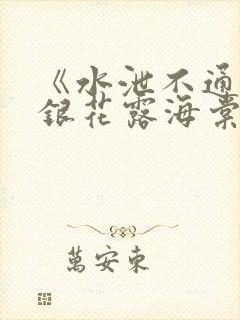 《水泄不通
銀花露海棠
萬安東